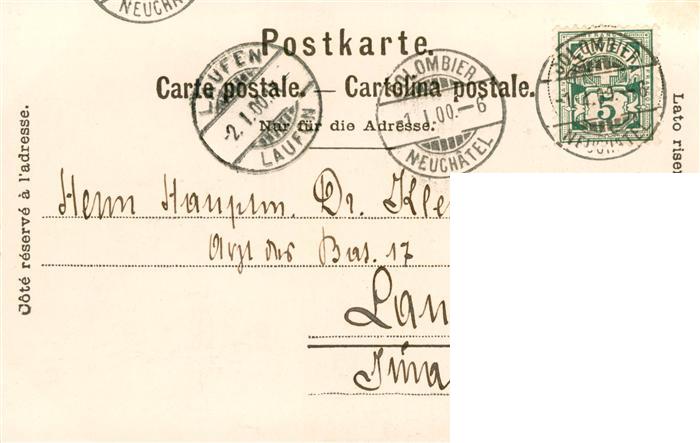 NEUCHÂ
Postkarte.
Carte postale. — Cartolina postale.
Nur für die Adresse.
LAUFEN
2.I.00.
LAUFEN
COLOMBIER
1.I.00.–6
NEUCHÂTEL
COLOMBIER
5
NEUCH
Côté réservé à l'adresse.
Lato riser
Herrn Hauptm. Dr. Kle
Arzt des Bat. 17
Lau